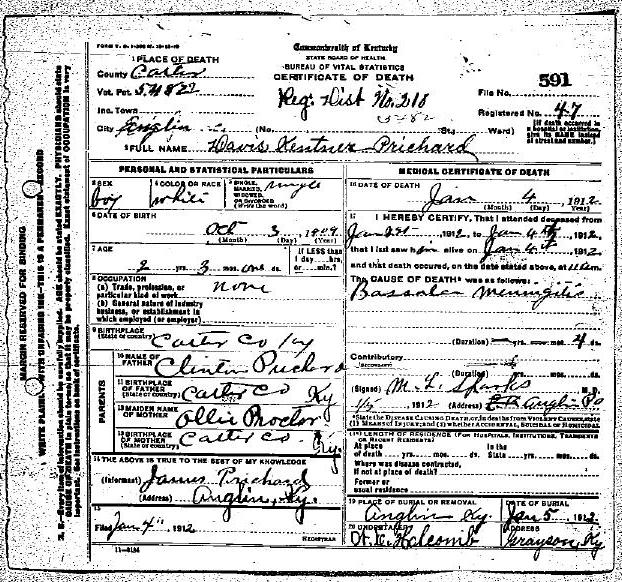 FORM V. S. 
Commonwealth of Kentucky
STATE BOARD OF HEALTH
BUREAU OF VITAL STATISTICS
CERTIFICATE OF DEATH
1 PLACE OF DEATH
County Carter
Vot. Pct. 54822
Inc. Town
City Anglin (No. St.; Ward)
Reg. Dist No. 218
5482
591
File No.
Registered No. 47
[If death occurred in a hospital or institution, give its NAME instead of street and number.]
2 FULL NAME Davis Kentner Prichard
PERSONAL AND STATISTICAL PARTICULARS
3 SEX boy
4 COLOR OR RACE white
5 SINGLE, MARRIED, WIDOWED, OR DIVORCED (Write the word) single
6 DATE OF BIRTH Oct 3, 1909
(Month) (Day) (Year)
7 AGE 2 yrs. 3 mos. one ds.
If LESS than 1 day....hrs. or....min.?
8 OCCUPATION
(a) Trade, profession, or particular kind of work none
(b) General nature of industry business, or establishment in which employed (or employer)
9 BIRTHPLACE
(State or country) Carter Co Ky
PARENTS
10 NAME OF FATHER Clinton Prichard
11 BIRTHPLACE OF FATHER (State or country) Carter Co Ky
12 MAIDEN NAME OF MOTHER Ollie Proctor
13 BIRTHPLACE OF MOTHER (State or country) Carter Co. Ky.
14 THE ABOVE IS TRUE TO THE BEST OF MY KNOWLEDGE
(Informant) James Prichard
(Address) Anglin, Ky.
15
Filed Jan 4th 1912
REGISTRAR
11-3184
MEDICAL CERTIFICATE OF DEATH
16 DATE OF DEATH
Jan 4, 1912
(Month) (Day) (Year)
17 I HEREBY CERTIFY, That I attended deceased from
Jan 1st 1912, to Jan 4th, 1912,
that I last saw him alive on Jan 4th, 1912,
and that death occured, on the date stated above, at 11 a.m.
The CAUSE OF DEATH* was as follows:
Meningitis
(Duration) yrs. mos. 4 ds.
Contributory
(SECONDARY)
(Duration) yrs. mos. ds.
(Signed) M. L. Sparks M.D.
1/4, 1912 (Address) Anglin Po
*State the DISEASE CAUSING DEATH, or, in deaths from VIOLENT CAUSES, state (1) MEANS OF INJURY; and (2) whether ACCIDENTAL, SUICIDAL OR HOMICIDAL
18 LENGTH OF RESIDENCE (FOR HOSPITALS, INSTITUTIONS, TRANSIENTS OR RECENT RESIDENTS)
At place of death yrs. mos. ds. In the State yrs. mos. ds.
Where was disease contracted,
if not at place of death?
Former or usual residence
19 PLACE OF BURIAL OR REMOVAL
Anglin Ky.
DATE OF BURIAL
Jan 5, 1912
20 UNDERTAKER
Holcomb
ADDRESS
Grayson, Ky
MARGIN RESERVED FOR BINDING
WRITE PLAINLY, WITH UNFADING INK—THIS IS A PERMANENT RECORD
N. B.—Every item of information should be carefully supplied. AGE should be stated EXACTLY. PHYSICIANS should state
CAUSE OF DEATH in plain terms, so that it may be properly classified. Exact statement of OCCUPATION is very
important. See instructions on back of certificate.